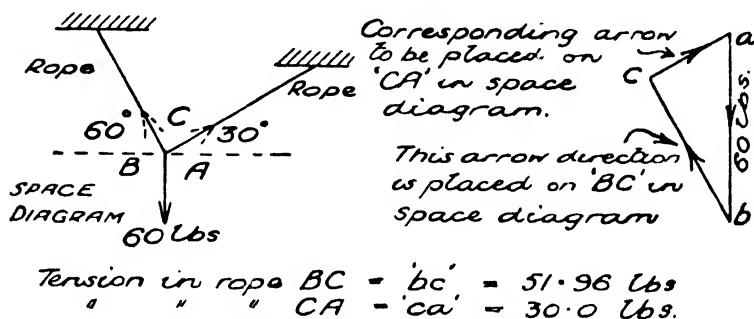 Rope
Rope
60° C 30°
B A
SPACE
DIAGRAM
60 lbs
Corresponding arrow
to be placed on
'CA' in space
diagram.
This arrow direction
is placed on 'BC' in
space diagram
a
c
60 lbs.
b
Tension in rope BC = 'bc' = 51·96 lbs
" " " CA = 'ca' = 30·0 lbs.